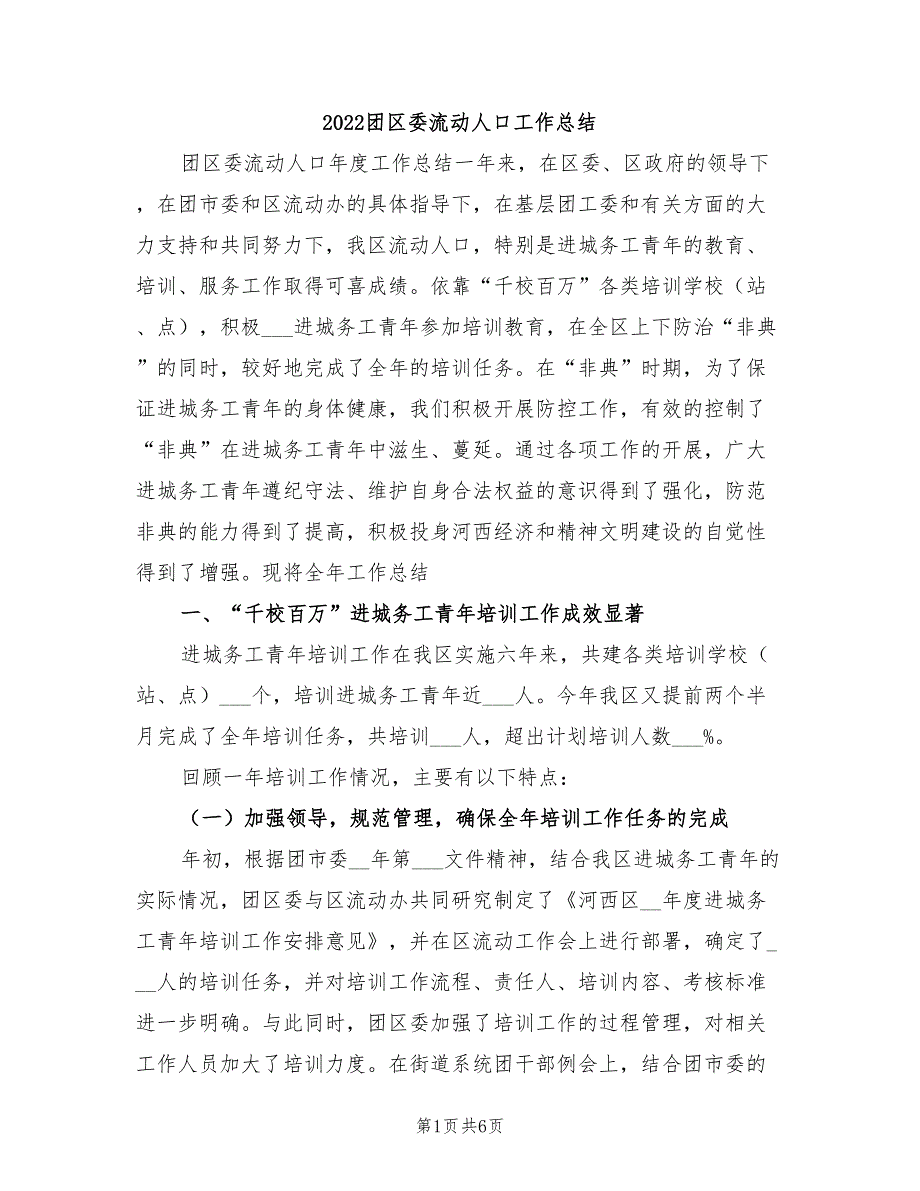 2022团区委流动人口工作总结
团区委流动人口年度工作总结一年来，在区委、区政府的领导下
，在团市委和区流动办的具体指导下，在基层团工委和有关方面的大
力支持和共同努力下，我区流动人口，特别是进城务工青年的教育、
培训、服务工作取得可喜成绩。依靠“千校百万”各类培训学校（站
、点），积极___进城务工青年参加培训教育，在全区上下防治“非典
”的同时，较好地完成了全年的培训任务。在“非典”时期，为了保
证进城务工青年的身体健康，我们积极开展防控工作，有效的控制了
“非典”在进城务工青年中滋生、蔓延。通过各项工作的开展，广大
进城务工青年遵纪守法、维护自身合法权益的意识得到了强化，防范
非典的能力得到了提高，积极投身河西经济和精神文明建设的自觉性
得到了增强。现将全年工作总结
一、“千校百万”进城务工青年培训工作成效显著
进城务工青年培训工作在我区实施六年来，共建各类培训学校（
站、点）___个，培训进城务工青年近___人。今年我区又提前两个半
月完成了全年培训任务，共培训___人，超出计划培训人数___%。
回顾一年培训工作情况，主要有以下特点：
（一）加强领导，规范管理，确保全年培训工作任务的完成
年初，根据团市委__年第___文件精神，结合我区进城务工青年的
实际情况，团区委与区流动办共同研究制定了《河西区__年度进城务
工青年培训工作安排意见》，并在区流动工作会上进行部署，确定了_
__人的培训任务，并对培训工作流程、责任人、培训内容、考核标准
进一步明确。与此同时，团区委加强了培训工作的过程管理，对相关
工作人员加大了培训力度。在街道系统团干部例会上，结合团市委的
第1页共6页